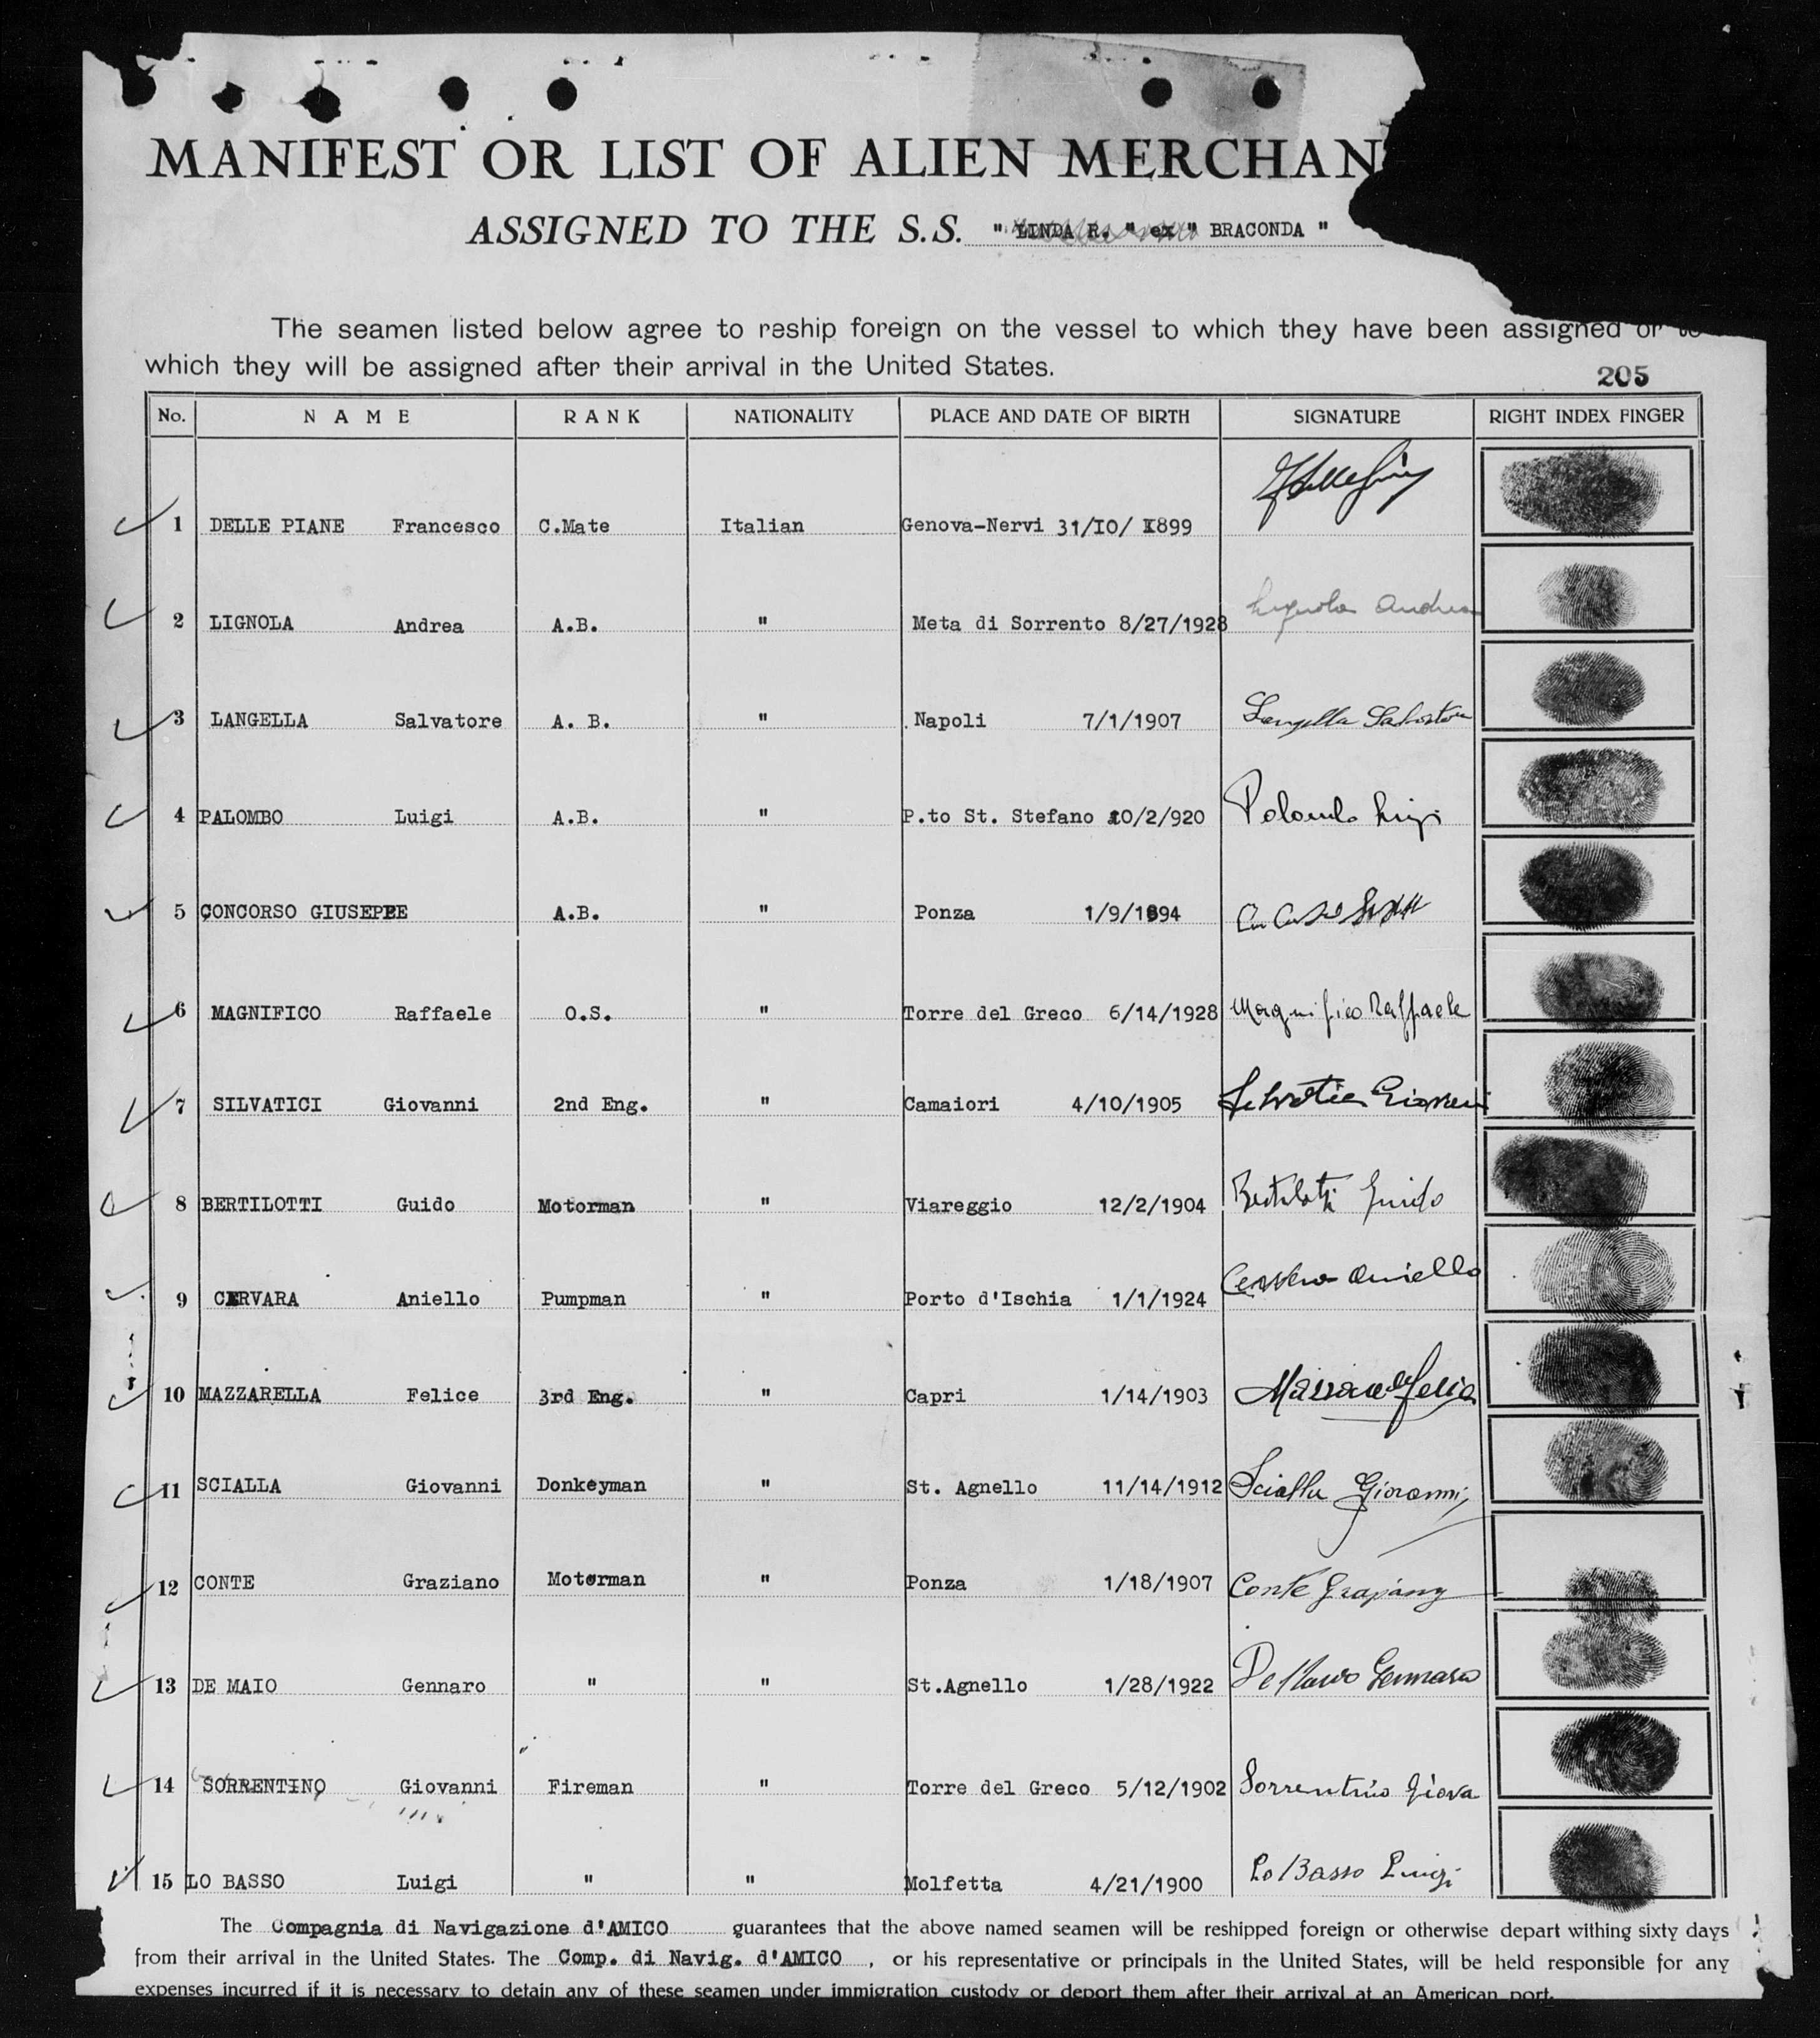 MANIFEST OR LIST OF ALIEN MERCHAN
ASSIGNED TO THE S.S. " LINDA R. " ex " BRACONDA "
The seamen listed below agree to reship foreign on the vessel to which they have been assigned or to
which they will be assigned after their arrival in the United States.
205
No. NAME RANK NATIONALITY PLACE AND DATE OF BIRTH SIGNATURE RIGHT INDEX FINGER
1 DELLE PIANE Francesco C.Mate Italian Genova-Nervi 31/IO/ 1899
2 LIGNOLA Andrea A.B. " Meta di Sorrento 8/27/1928 Lignola Andrea
3 LANGELLA Salvatore A. B. " Napoli 7/1/1907 Langella Salvatore
4 PALOMBO Luigi A.B. " P.to St. Stefano 10/2/920 Palombo Luigi
5 CONCORSO GIUSEPPE A.B. " Ponza 1/9/1894
6 MAGNIFICO Raffaele O.S. " Torre del Greco 6/14/1928 Magnifico Raffaele
7 SILVATICI Giovanni 2nd Eng. " Camaiori 4/10/1905 Silvatici Giovanni
8 BERTILOTTI Guido Motorman " Viareggio 12/2/1904 Bertilotti Guido
9 CERVARA Aniello Pumpman " Porto d'Ischia 1/1/1924 Cervara Aniello
10 MAZZARELLA Felice 3rd Eng. " Capri 1/14/1903 Mazzarella Felice
11 SCIALLA Giovanni Donkeyman " St. Agnello 11/14/1912 Scialla Giovanni
12 CONTE Graziano Motorman " Ponza 1/18/1907 Conte Graziano
13 DE MAIO Gennaro " " St.Agnello 1/28/1922 De Maio Gennaro
14 SORRENTINO Giovanni Fireman " Torre del Greco 5/12/1902 Sorrentino Giova
15 LO BASSO Luigi " " Molfetta 4/21/1900 Lo Basso Luigi
The Compagnia di Navigazione d'AMICO guarantees that the above named seamen will be reshipped foreign or otherwise depart withing sixty days
from their arrival in the United States. The Comp. di Navig. d'AMICO , or his representative or principals in the United States, will be held responsible for any
expenses incurred if it is necessary to detain any of these seamen under immigration custody or deport them after their arrival at an American port.